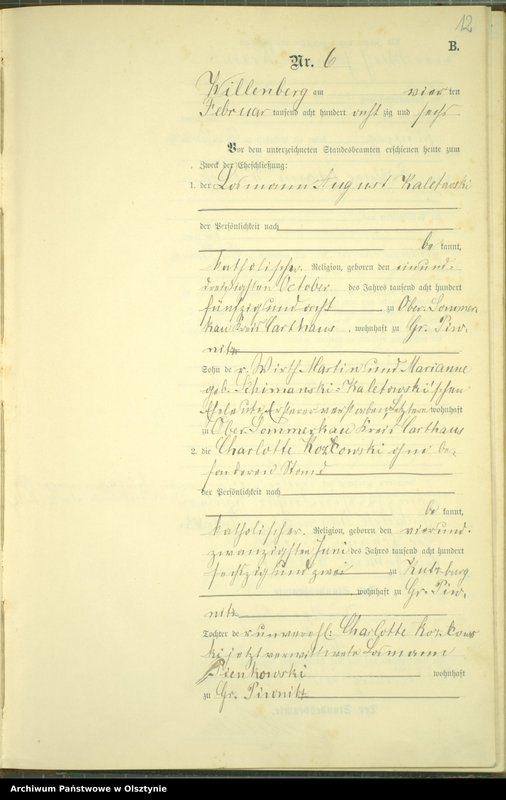 12
B.
Nr. 6
Willenberg am vier ten
Februar tausend acht hundert acht zig und sechs
Vor dem unterzeichneten Standesbeamten erschienen heute zum
Zweck der Eheschließung:
1. der Losmann August Kaletowski
der Persönlichkeit nach
be kannt,
katholischer Religion, geboren den einund-
dreißigsten October des Jahres tausend acht hundert
fünfzig und acht zu Ober Sommer
kau Kreis Carthaus, wohnhaft zu Gr. Piw-
nitz
Sohn der Wirth Martin und Marianne
geb. Schimanski-Kaletowski'schen
Eheleute, Ersterer verstorben, Letztere wohnhaft
zu Ober Sommerkau Kreis Carthaus
2. die Charlotte Kozkowski ohne be-
sonderen Stand
der Persönlichkeit nach
be kannt,
katholischer Religion, geboren den vierund-
zwanzigsten Juni des Jahres tausend acht hundert
sechzig und zwei zu Kutzburg
, wohnhaft zu Gr. Piw-
nitz
Tochter der unverehl: Charlotte Kozkows
ki jetzt verwittwete Losmann
Pienkowski wohnhaft
zu Gr. Piwnitz
Archiwum Państwowe w Olsztynie